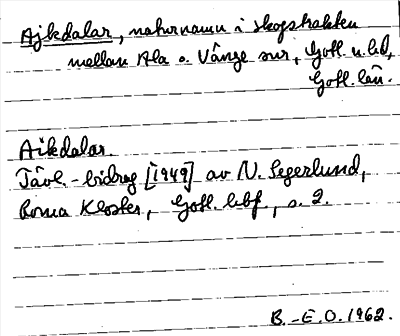 Ajkedalar, naturnamn i skogstrakten
mellan Ala o. Vänge snr, Gotl. n. hd,
Gotl. län.
Aikdalar.
Tävl.-bidrag [1949] av N. Segerlund,
Roma Kloster, Gotl. hbf., s. 2.
B.-E. O. 1962.